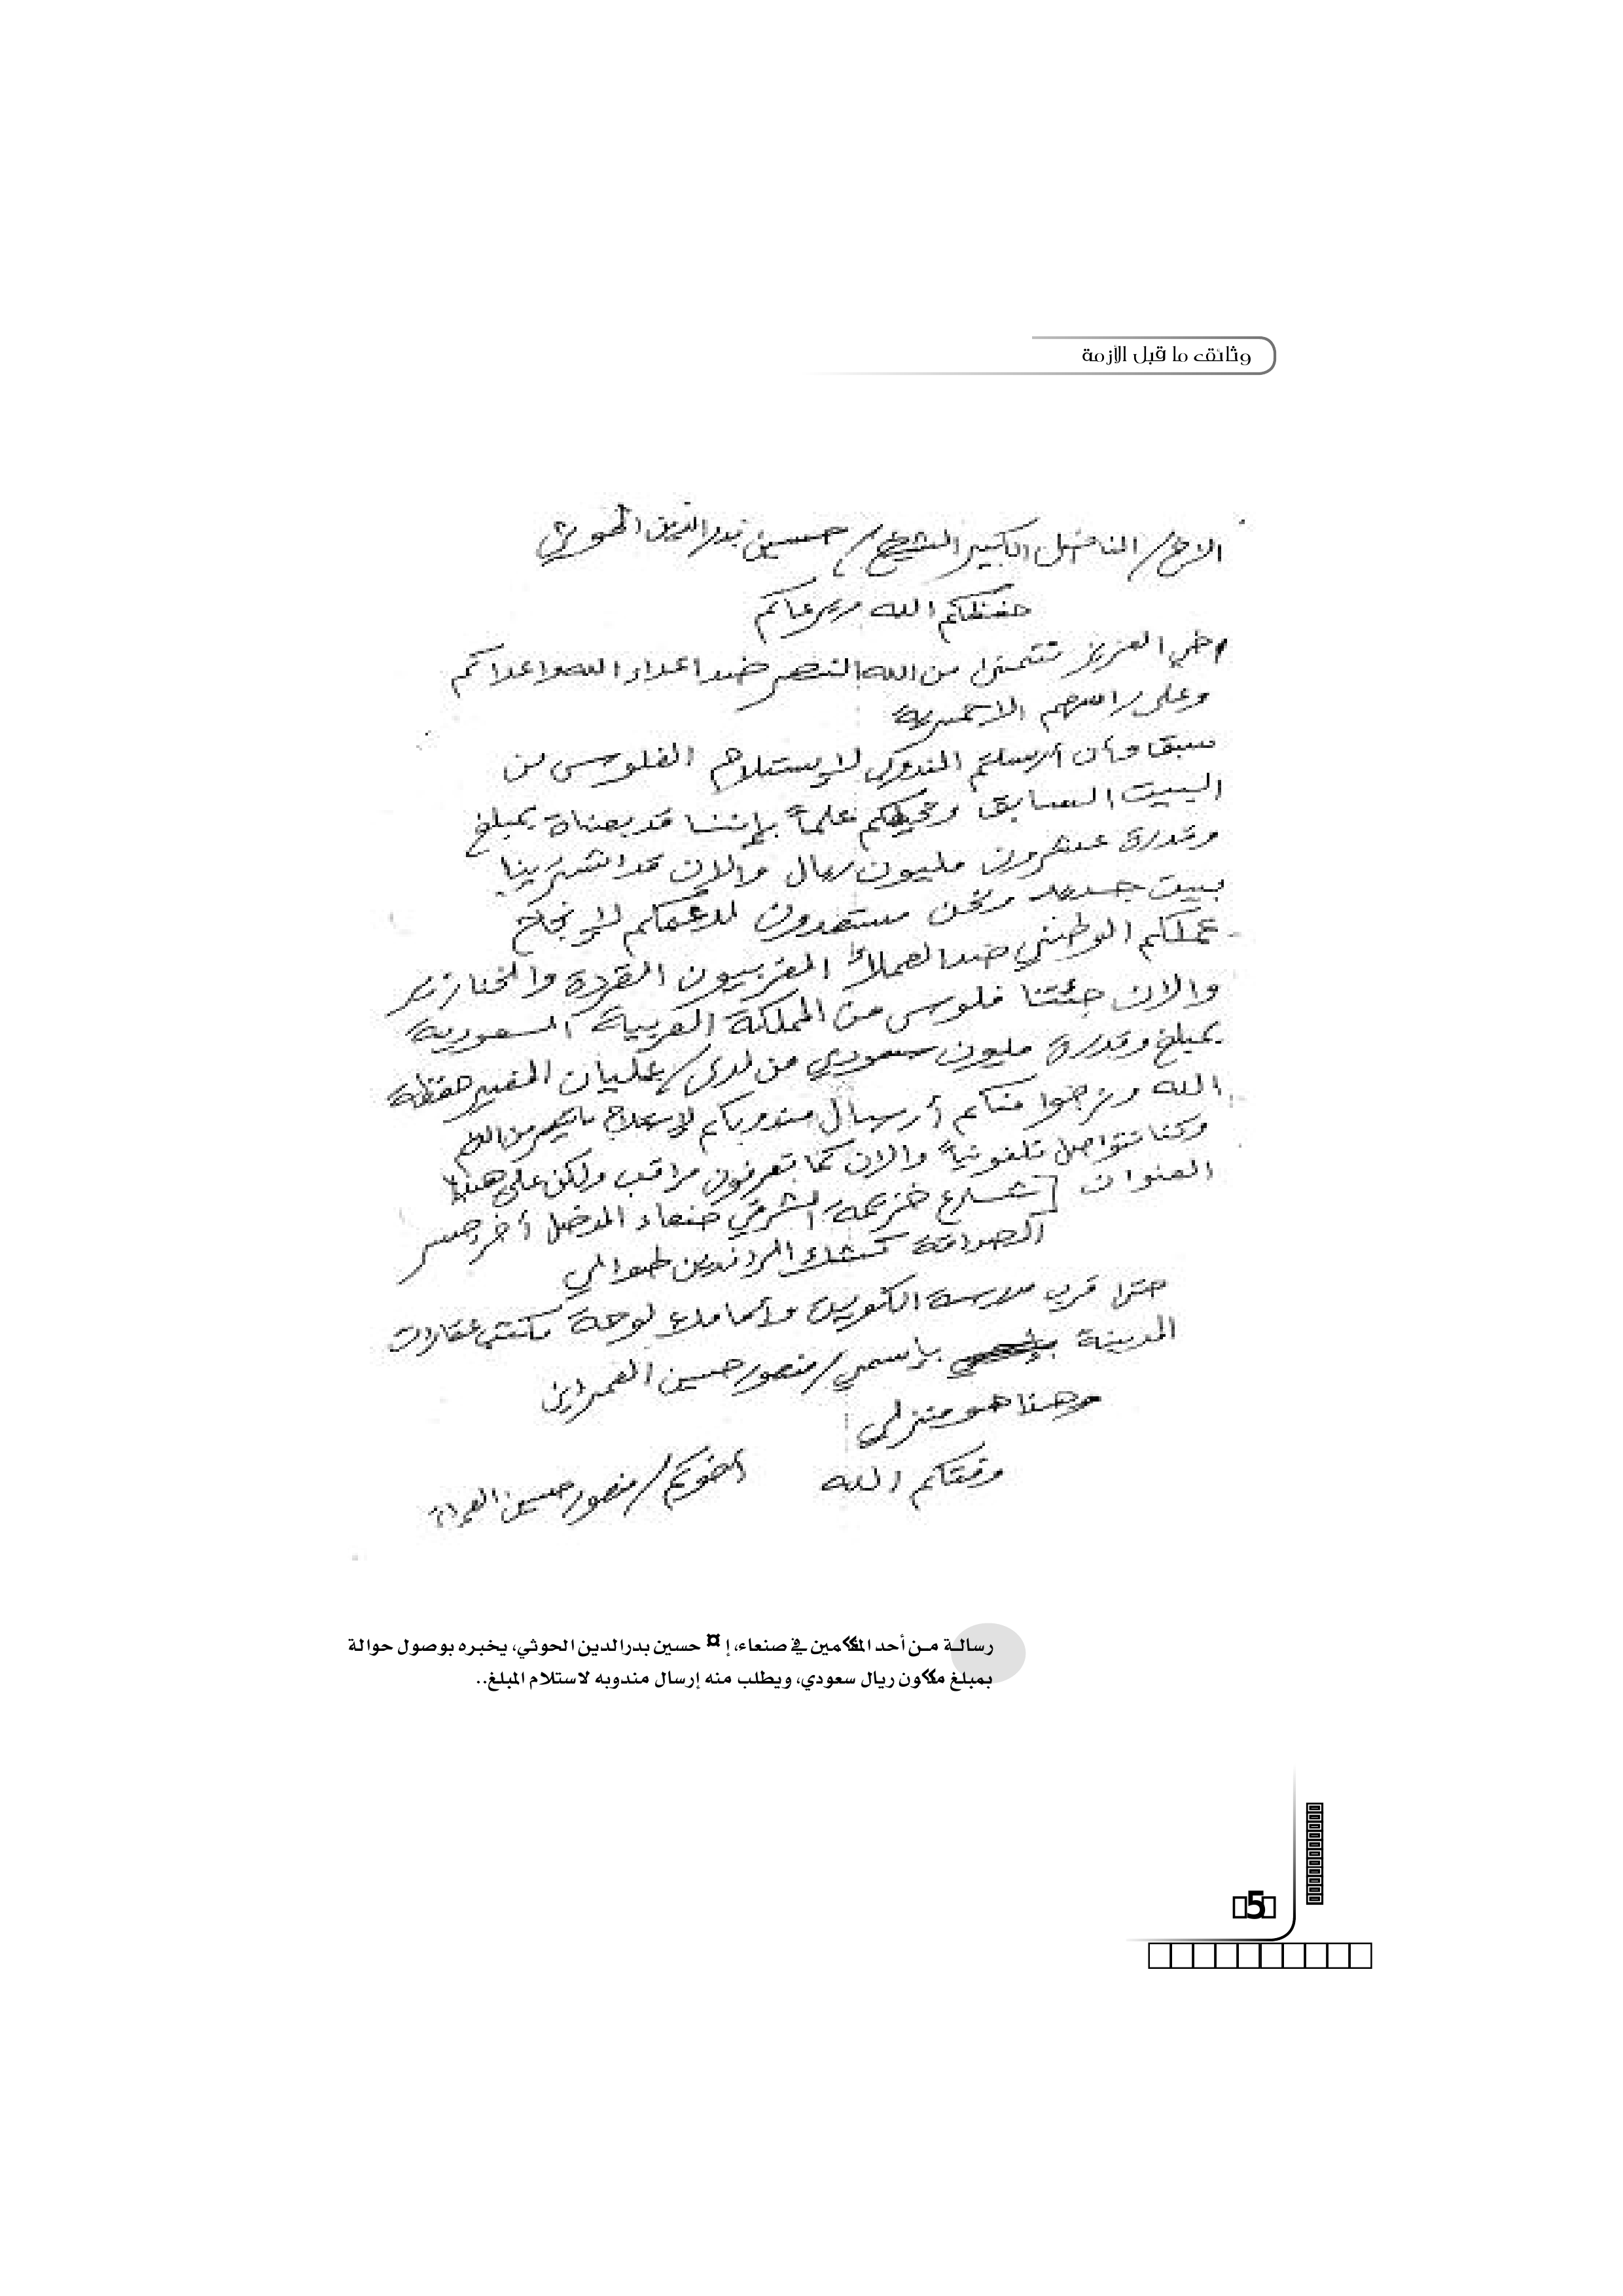 وثائق ما قبل الأزمة
الاخ/ الفاضل الكبير الشيخ/ حسين بدر الدين الحوثي
حفظكم الله ورعاكم
اخي العزيز نتمنى من الله النصر ضد اعداء الله واعداكم
وعلى راسهم
سبق وأن أرسلتم المندوب لإستلام الفلوس من
البيت السابق ونحيطكم علماً بإننا قد بعناة بمبلغ
وقدرة عشرون مليون ريال والان قد اشترينا
بيت جديد ونحن مستعدون لدعمكم لإنجاح
عملكم الوطني ضد العملاء الغربيون القردة والخنازير
والان جئتنا فلوس من المملكة العربية السعودية
بمبلغ وقدرة مليون سعودي من لدى/ عليان حفظة
الله ونرجوا منكم أرسال مندوبكم
وكنا نتواصل تلفونياً والان كما تعرفون مراقب ولكن على هذا
العنوان [شارع خزيمة الشرقي صنعاء المدخل أخر جسر
الصداقة كشك
قرب مدرسة وأمامك لوحة مكتب عقارات
المدينة بإسمي/ منصور حسين العمراني
وهذا هو منزلي
وفقكم الله
أخوكم/ منصور حسين العمراني
رسالة من أحد في صنعاء، حسين بدرالدين الحوثي، يخبره بوصول حوالة
بمبلغ ريال سعودي، ويطلب منه إرسال مندوبه لاستلام المبلغ..
5